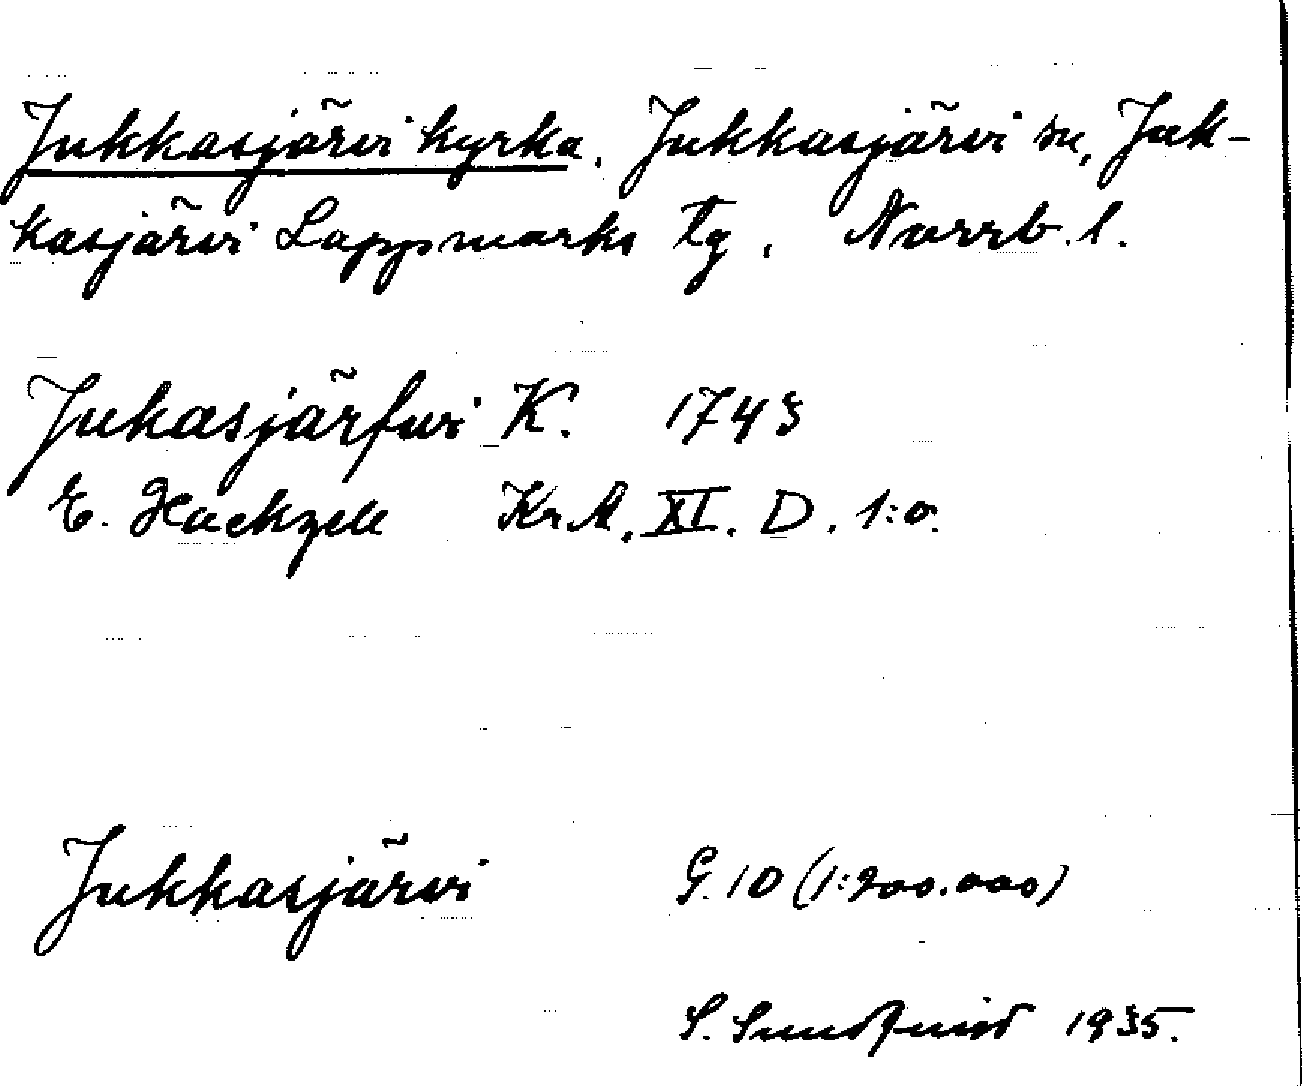 Jukkasjärvi kyrka. Jukkasjärvi sn, Juk-
kasjärvi Lappmarks tg, Norrb. l.
Jukasjärfwi K. 1743
E. Hackzell Kr A. XI. D. 1:o.
Jukkasjärvi G. 10 (1:200.000)
S. Sundquist 1935.